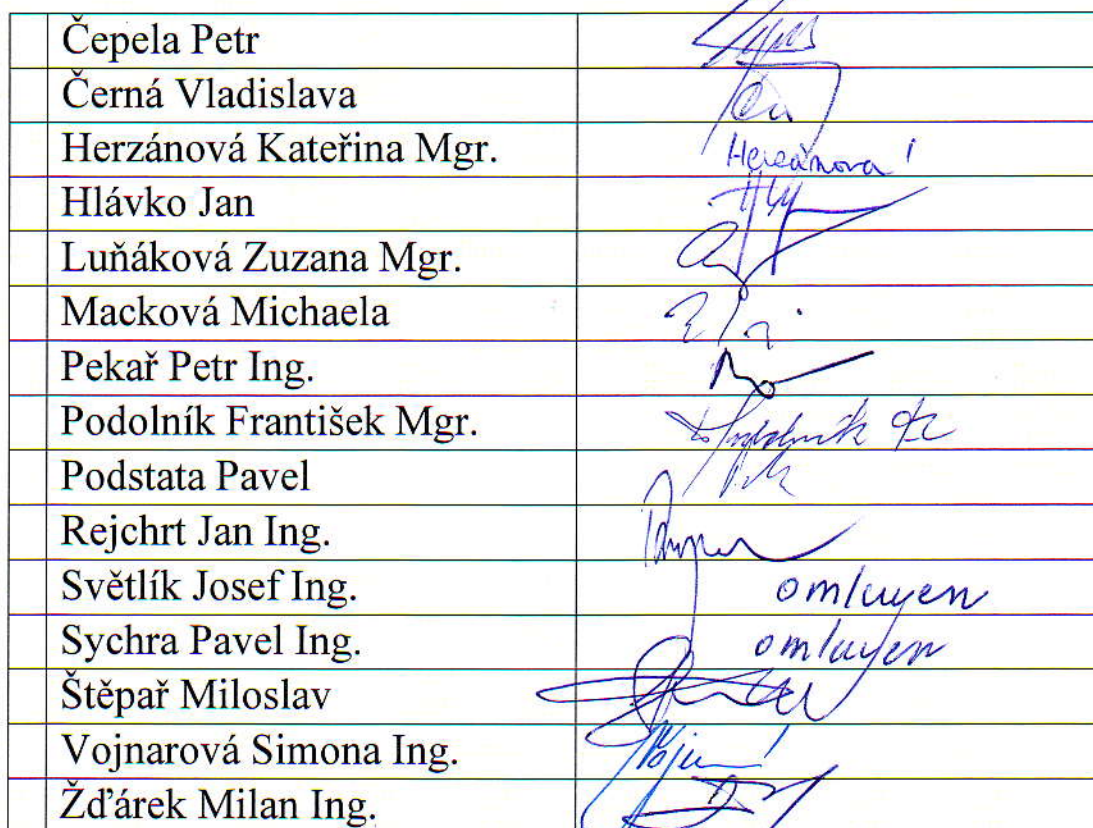 Čepela Petr
Černá Vladislava
Herzánová Kateřina Mgr. Herzánová
Hlávko Jan
Luňáková Zuzana Mgr.
Macková Michaela
Pekař Petr Ing.
Podolník František Mgr. Podolník
Podstata Pavel
Rejchrt Jan Ing.
Světlík Josef Ing. omluven
Sychra Pavel Ing. omluven
Štěpař Miloslav
Vojnarová Simona Ing.
Žďárek Milan Ing.